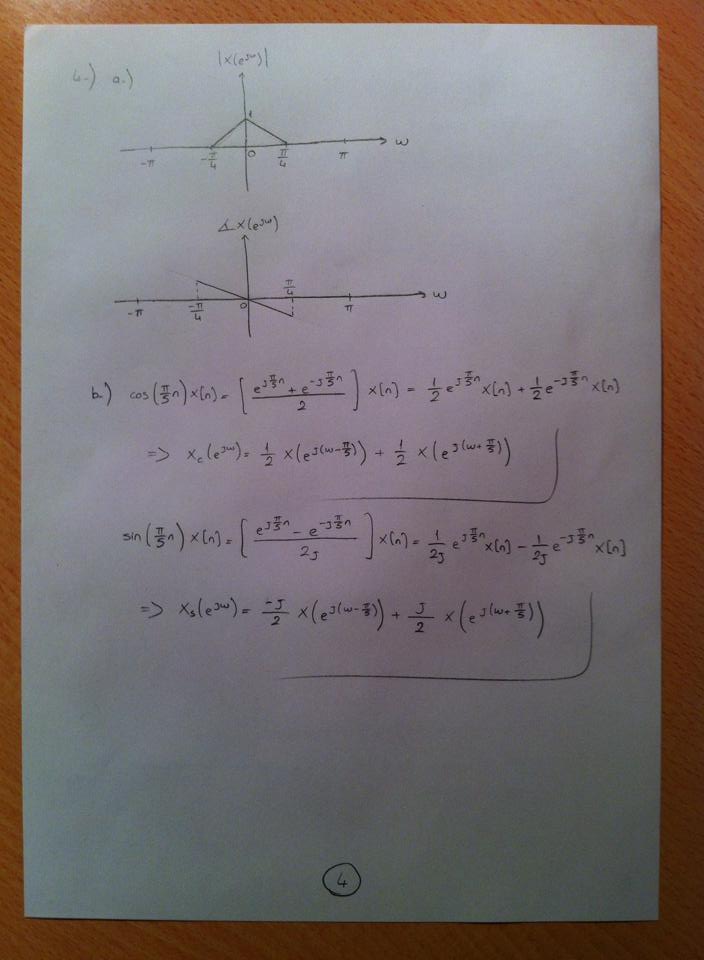 4.) a.)
|X(e^jω)|
1
-π -π/4 0 π/4 π ω
∡X(e^jω)
π/4
-π -π/4 0 π ω
b.) cos(π/5 n) x[n] = [ (e^(jπ/5 n) + e^(-jπ/5 n)) / 2 ] x[n] = 1/2 e^(jπ/5 n) x[n] + 1/2 e^(-jπ/5 n) x[n]
=> X_c(e^jω) = 1/2 X(e^(j(ω-π/5))) + 1/2 X(e^(j(ω+π/5)))
sin(π/5 n) x[n] = [ (e^(jπ/5 n) - e^(-jπ/5 n)) / 2j ] x[n] = 1/2j e^(jπ/5 n) x[n] - 1/2j e^(-jπ/5 n) x[n]
=> X_s(e^jω) = -j/2 X(e^(j(ω-π/5))) + j/2 X(e^(j(ω+π/5)))
4